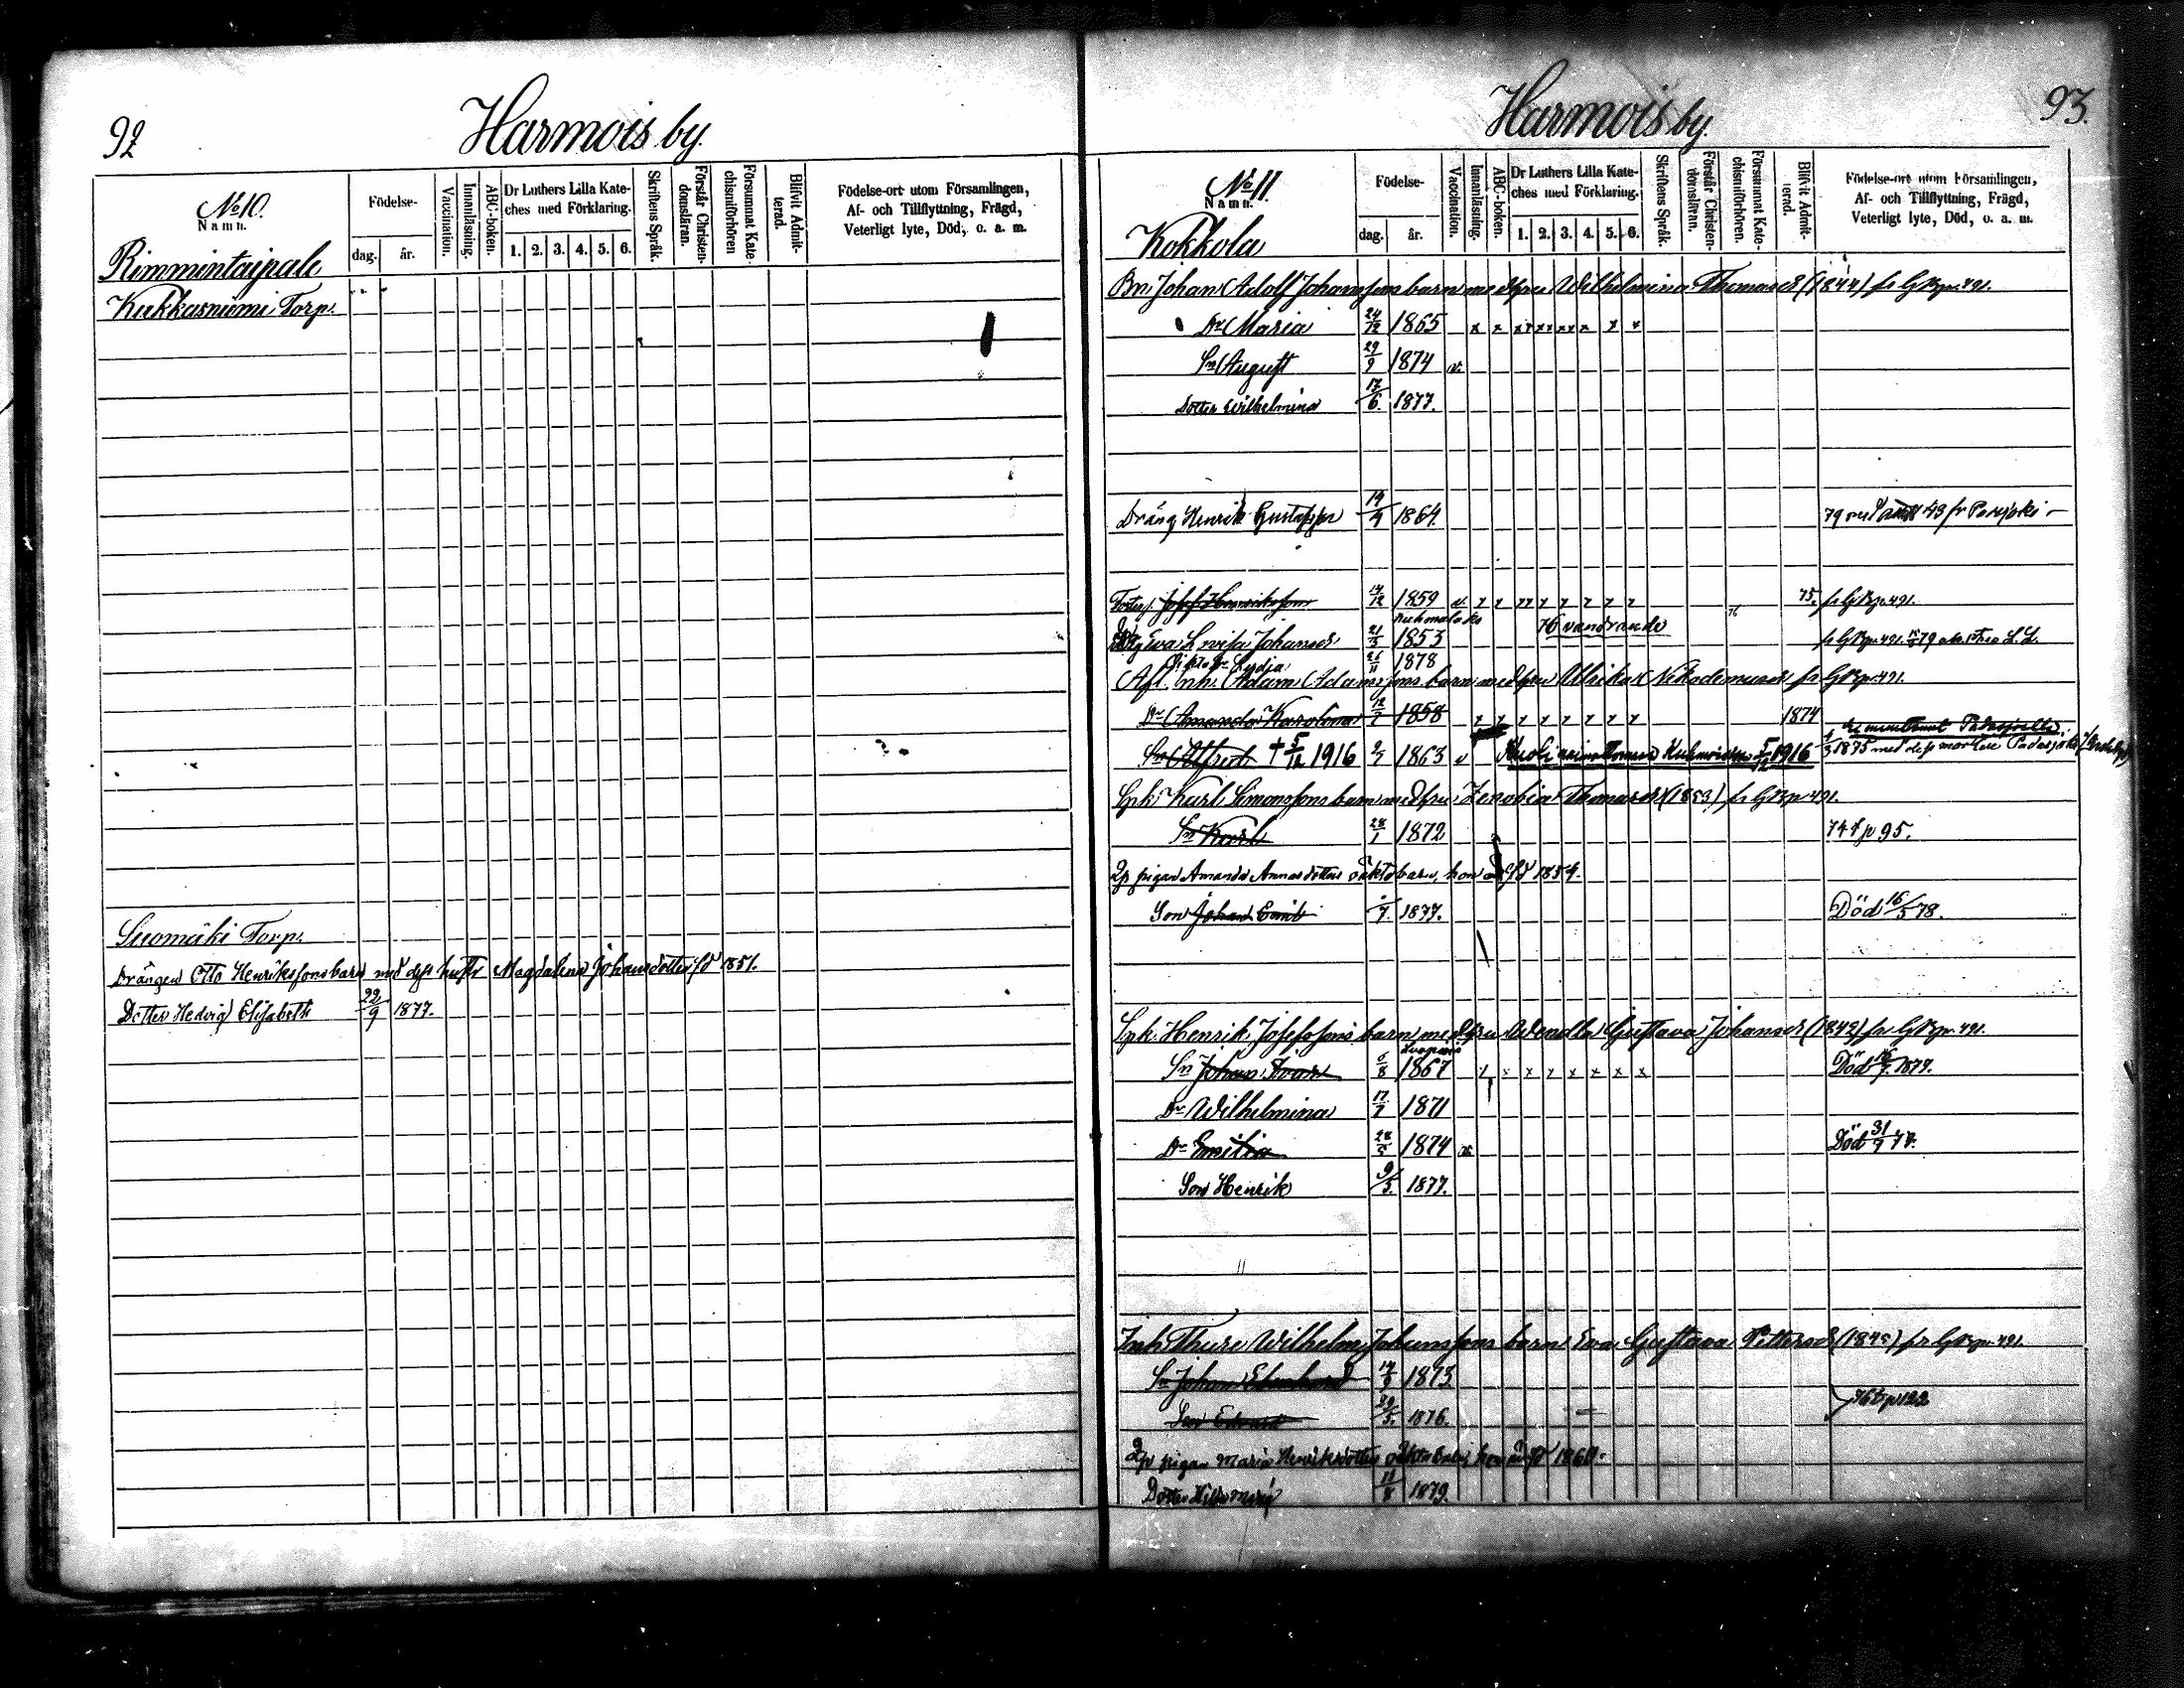 92
Harmois by.
No 10.
Namn.
Födelse-
dag.
år.
Vaccination.
Innanläsning.
ABC-boken.
Dr Luthers Lilla Kate-
ches med Förklaring.
1. 2. 3. 4. 5. 6.
Skriftens Språk.
Förstår Christen-
domsläran.
Försummat Kate-
chismiförhören
Blifvit Admit-
terad.
Födelse-ort utom Församlingen,
Af- och Tillflyttning, Frägd,
Veterligt lyte, Död, o. a. m.
Rimmintaipale
Kukkasniemi Torp.
Suomäki Torp.
Drängen Otto Henrikssons barn med dess hustr Magdalena Johansdotter fd 1851.
Dotter Hedvig Elisabeth 22/9 1877.
93.
Harmois by.
No 11.
Namn.
Födelse-
dag.
år.
Vaccination.
Innanläsning.
ABC-boken.
Dr Luthers Lilla Kate-
ches med Förklaring.
1. 2. 3. 4. 5. 6.
Skriftens Språk.
Förstår Christen-
domsläran.
Försummat Kate-
chismiförhören.
Blifvit Admit-
terad.
Födelse-ort utom Församlingen,
Af- och Tillflyttning, Frägd,
Veterligt lyte, Död, o. a. m.
Kokkola
Bn. Johan Adolf Johanssons barn med Wilhelmina Thomasdr (1844) 491.
Dr Maria 24/12 1865 x x
Sn August 29/9 1874 v.
Dotter Wilhelmina 17/6 1877.
Dräng Henrik 1864. 79
1859 75. 491.
Ewa Lovisa Johansdr 21/3 1853 76 vandrande 491. 79
Dr Lydia 1878
Afl. inh. Adam Adamssons barn med Ulrika Nikodemusdr 491.
Dr Amanda Karolina 1858 1874
Sn Alfred † 5/12 1916 1863 v 1916 1875 med dess moder
Karl Simonssons barn med Zenobia Thomasdr (1853) 491.
Sn Karl 28/1 1872 74 p 95.
pigan Amanda Annasdotters oäkta barn, hon är fd 1854.
Son Johan Emil 1877. Död 16/5 78.
Henrik Josefssons barn med Wendla Gustava Johansdr (1842) 491.
Sn Johan Ivar 1867 Död 1877.
Dr Wilhelmina 17/7 1871
Dr Emilia 28/5 1874 v. Död 31/7
Son Henrik 9/3. 1877.
Inh. Thure Wilhelm Johanssons barn Eva Gustava Pettersdr (1845) 491.
Sn Johan 1873.
Son Edvard 1876. 76 p 122
pigan Maria Henriksdotters oäkta barn, hon är fd
Dotter 11/8 1879.